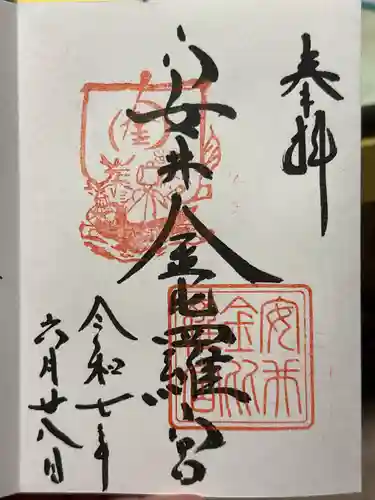 奉拝
安井金毘羅宮
令和七年
六月廿八日
金
安井金比羅宮